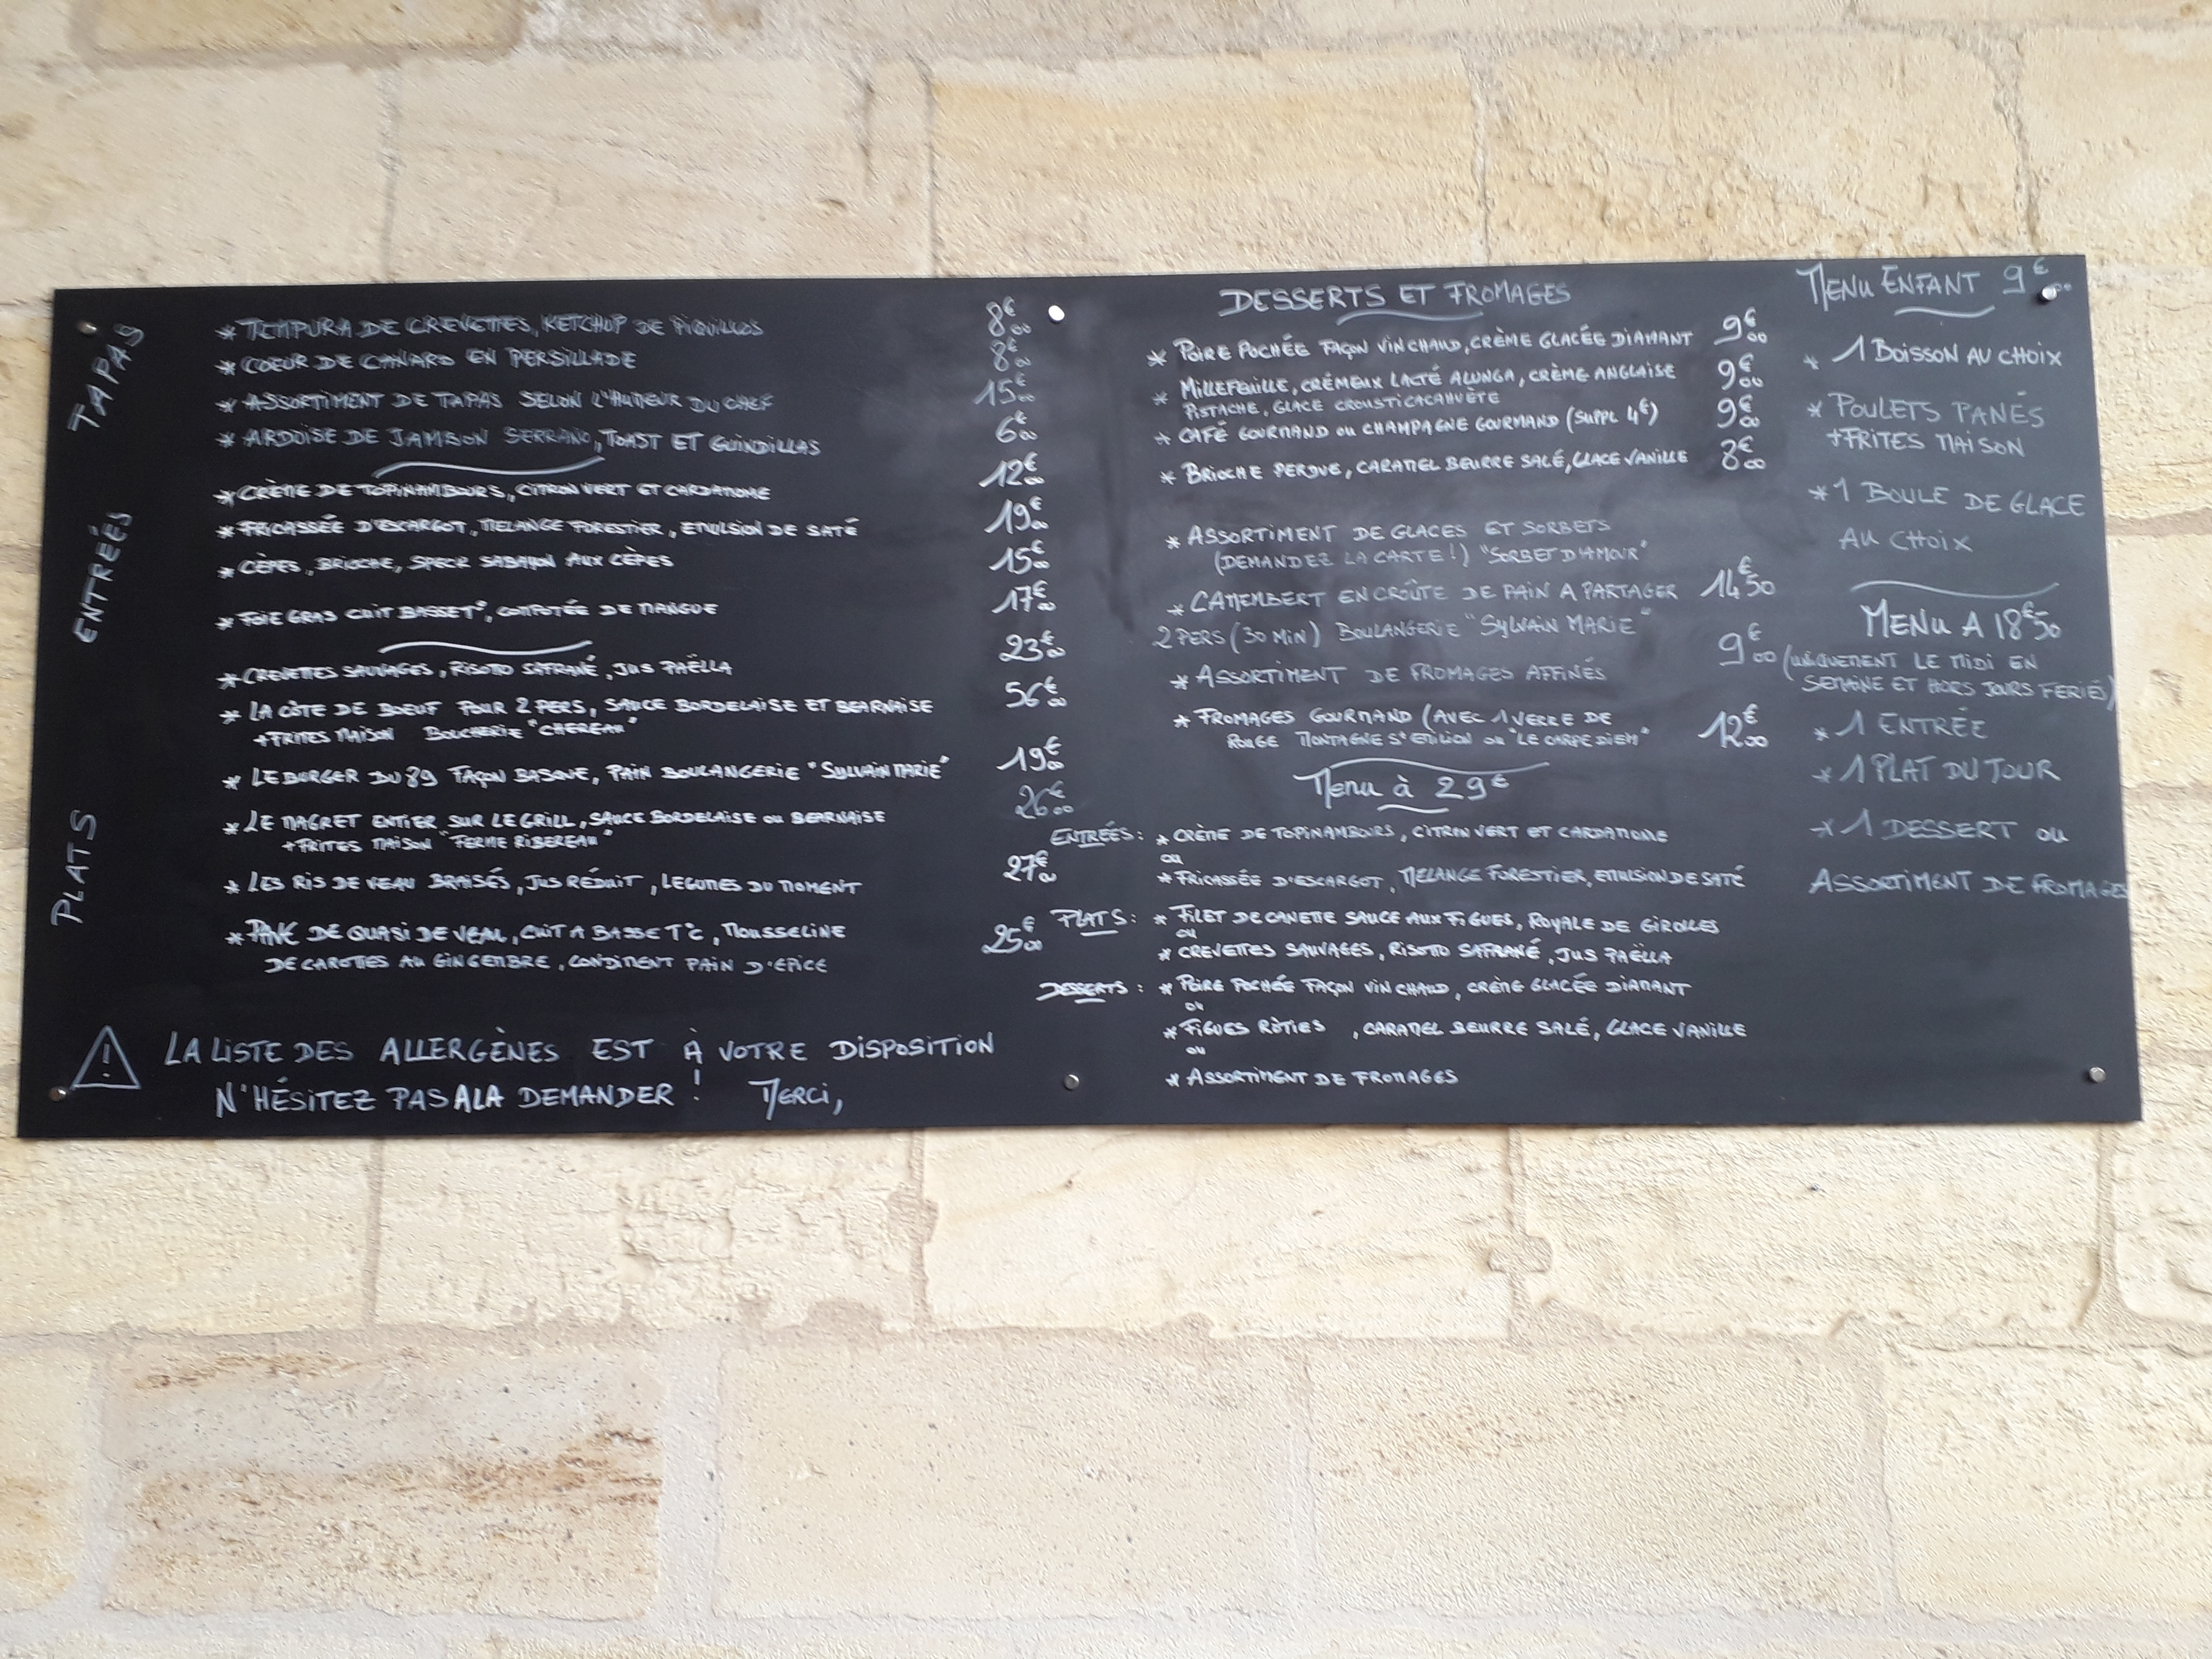 TAPAS
* TEMPURA DE CREVETTES, KETCHUP DE PIQUILLOS 8€00
* COEUR DE CANARD EN PERSILLADE 8€00
* ASSORTIMENT DE TAPAS SELON L'HUMEUR DU CHEF 15€00
* ARDOISE DE JAMBON SERRANO, TOAST ET GUINDILLAS 6€00
ENTRÉES
* CRÈME DE TOPINAMBOURS, CITRON VERT ET CARDAMOME 12€00
* FRICASSÉE D'ESCARGOT, MELANGE FORESTIER, EMULSION DE SATÉ 19€00
* CÈPES, BRIOCHE, SPECK SABAYON AUX CÈPES 15€00
* FOIE GRAS CUIT BASSE T°, COMPOTÉE DE MANGUE 17€00
PLATS
* CREVETTES SAUVAGES, RISOTTO SAFRANÉ, JUS PAËLLA 23€00
* LA CÔTE DE BOEUF POUR 2 PERS, SAUCE BORDELAISE ET BEARNAISE 56€00
+ FRITES MAISON BOUCHERIE "CHEREAU"
* LE BURGER DU 89 FAÇON BASQUE, PAIN BOULANGERIE "SYLVAIN MARIE" 19€00
* LE MAGRET ENTIER SUR LE GRILL, SAUCE BORDELAISE OU BEARNAISE 26€00
+ FRITES MAISON "FERME RIBEREAU"
* LES RIS DE VEAU BRAISÉS, JUS RÉDUIT, LEGUMES DU MOMENT 27€00
* PAVÉ DE QUASI DE VEAU, CUIT A BASSE T°C, MOUSSELINE 25€00
DE CAROTTES AU GINGEMBRE, CONDIMENT PAIN D'EPICE
LA LISTE DES ALLERGÈNES EST À VOTRE DISPOSITION
N'HÉSITEZ PAS A LA DEMANDER ! MERCI,
DESSERTS ET FROMAGES
* POIRE POCHÉE FAÇON VIN CHAUD, CRÈME GLACÉE DIAMANT 9€00
* MILLEFEUILLE, CRÉMEUX LACTÉ ALUNGA, CRÈME ANGLAISE 9€00
PISTACHE, GLACE CROUSTICACAHUÈTE
* CAFÉ GOURMAND OU CHAMPAGNE GOURMAND (SUPPL 4€) 9€00
* BRIOCHE PERDUE, CARAMEL BEURRE SALÉ, GLACE VANILLE 8€00
* ASSORTIMENT DE GLACES ET SORBETS
(DEMANDEZ LA CARTE !) "SORBET D'AMOUR"
* CAMEMBERT EN CROÛTE DE PAIN A PARTAGER 14€50
2 PERS (30 MIN) BOULANGERIE "SYLVAIN MARIE"
* ASSORTIMENT DE FROMAGES AFFINÉS 9€00
* FROMAGES GOURMAND (AVEC 1 VERRE DE 12€00
ROUGE MONTAGNE ST EMILION OU "LE CARPE DIEM"
Menu à 29€
ENTRÉES : * CRÈME DE TOPINAMBOURS, CITRON VERT ET CARDAMOME
OU
* FRICASSÉE D'ESCARGOT, MELANGE FORESTIER, EMULSION DE SATÉ
PLATS : * FILET DE CANETTE SAUCE AUX FIGUES, ROYALE DE GIROLLES
OU
* CREVETTES SAUVAGES, RISOTTO SAFRANÉ, JUS PAËLLA
DESSERTS : * POIRE POCHÉE FAÇON VIN CHAUD, CRÈME GLACÉE DIAMANT
OU
* FIGUES RÔTIES , CARAMEL BEURRE SALÉ, GLACE VANILLE
OU
* ASSORTIMENT DE FROMAGES
MENU ENFANT 9€00
* 1 BOISSON AU CHOIX
* POULETS PANÉS
+ FRITES MAISON
* 1 BOULE DE GLACE
AU CHOIX
MENU A 18€50
(UNIQUEMENT LE MIDI EN
SEMAINE ET HORS JOURS FERIÉS)
* 1 ENTRÉE
* 1 PLAT DU JOUR
* 1 DESSERT OU
ASSORTIMENT DE FROMAGES